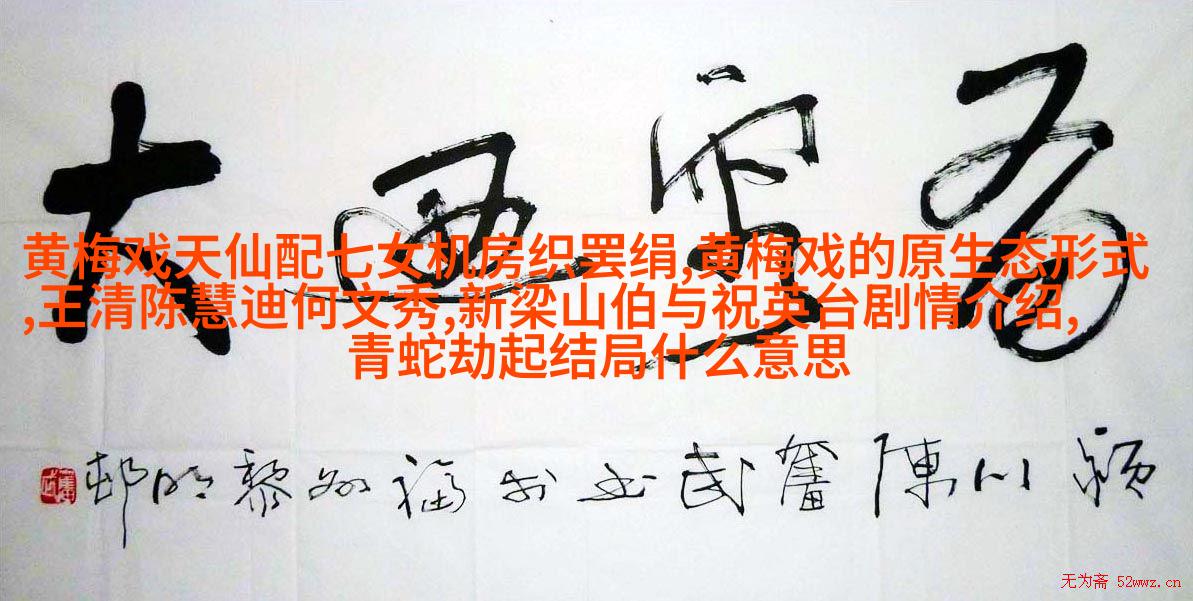 黄梅戏天仙配七女机房织罢绢,黄梅戏的原生态形式
,王清陈慧迪何文秀,新梁山伯与祝英台剧情介绍,
青蛇劫起结局什么意思
川陳奮武书于福州黎明邨
无为斋 52wwz.cn